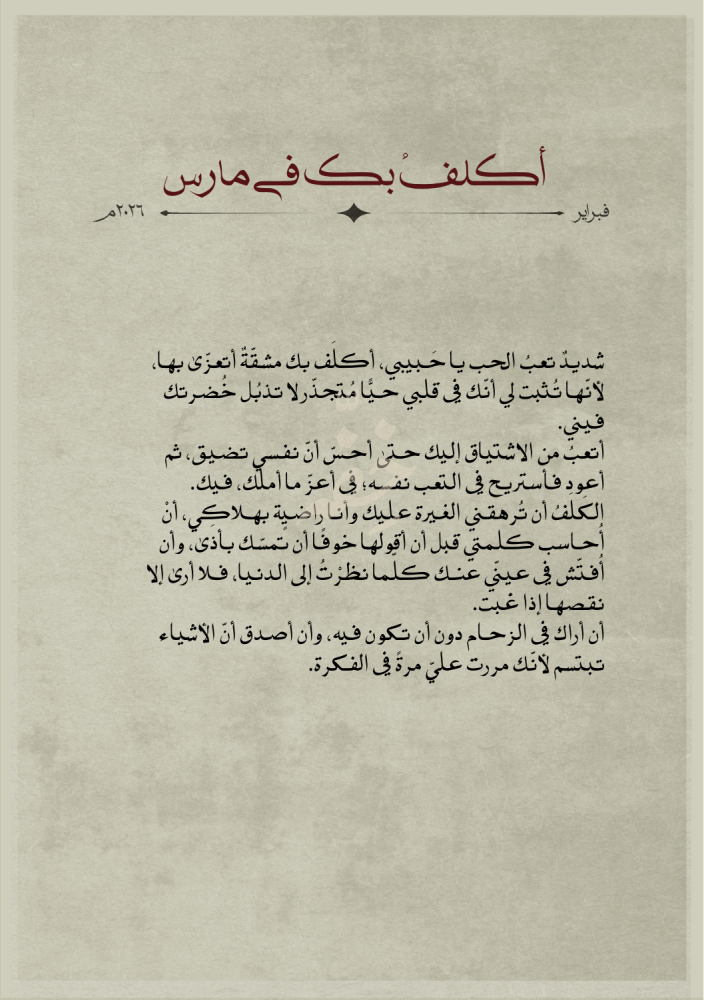 أكلفُ بك في مارس
فبراير ٢٠٢٦م
شديدٌ تعبُ الحب يا حَبيبي، أكلَف بك مشقّةٌ أتعزّىٰ بها،
لأنّها تُثبت لي أنّك في قلبي حيًّا مُتجذّر لا تذبُل خُضرتك
فيني.
أتعبُ من الاشتياق إليك حتىٰ أحسّ أنّ نفسي تضيق، ثم
أعود فأستريح في التعب نفسه؛ في أعزّ ما أملك، فيك.
الكلفُ أن تُرهقني الغيرة عليك وأنا راضية بهلاكِي، أنْ
أُحاسب كلمتي قبل أن أقولها خوفًا أن تمسّك بأذىٰ، وأن
أُفتّش في عينيّ عنك كلما نظرْتُ إلى الدنيا، فلا أرىٰ إلا
نقصها إذا غبت.
أن أراك في الزحام دون أن تكون فيه، وأن أصدق أنّ الأشياء
تبتسم لأنّك مررت عليّ مرةً في الفكرة.